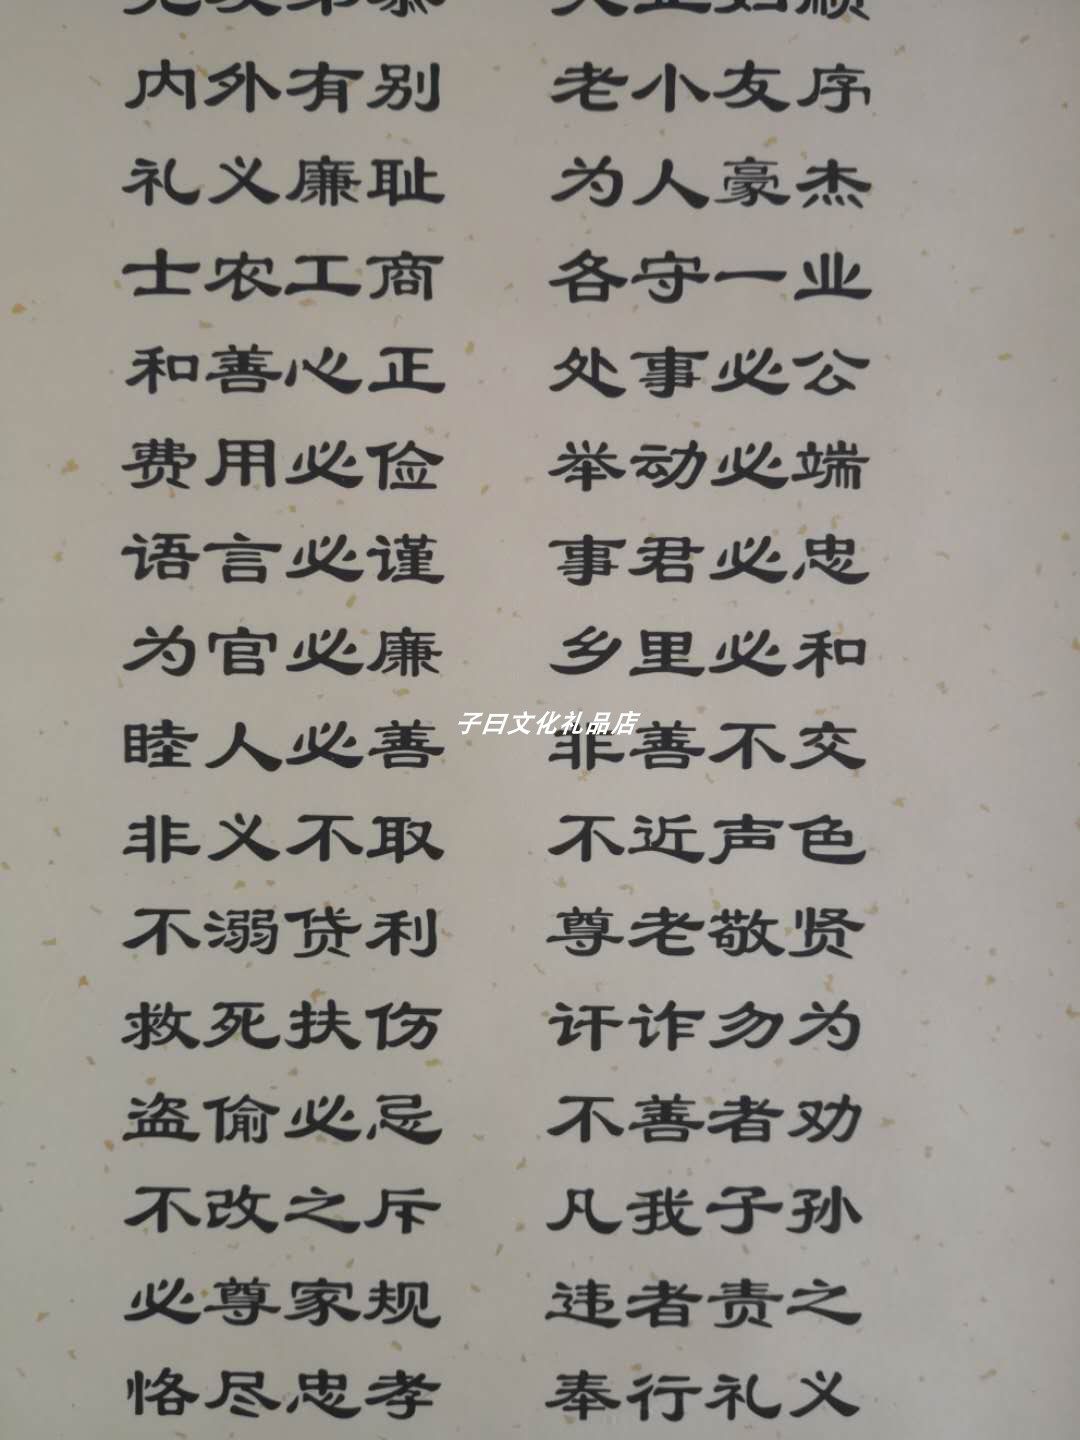 内外有别 老小友序
礼义廉耻 为人豪杰
士农工商 各守一业
和善心正 处事必公
费用必俭 举动必端
语言必谨 事君必忠
为官必廉 乡里必和
睦人必善 非善不交
子曰文化礼品店
非义不取 不近声色
不溺贷利 尊老敬贤
救死扶伤 讦诈勿为
盗偷必忌 不善者劝
不改之斥 凡我子孙
必尊家规 违者责之
恪尽忠孝 奉行礼义